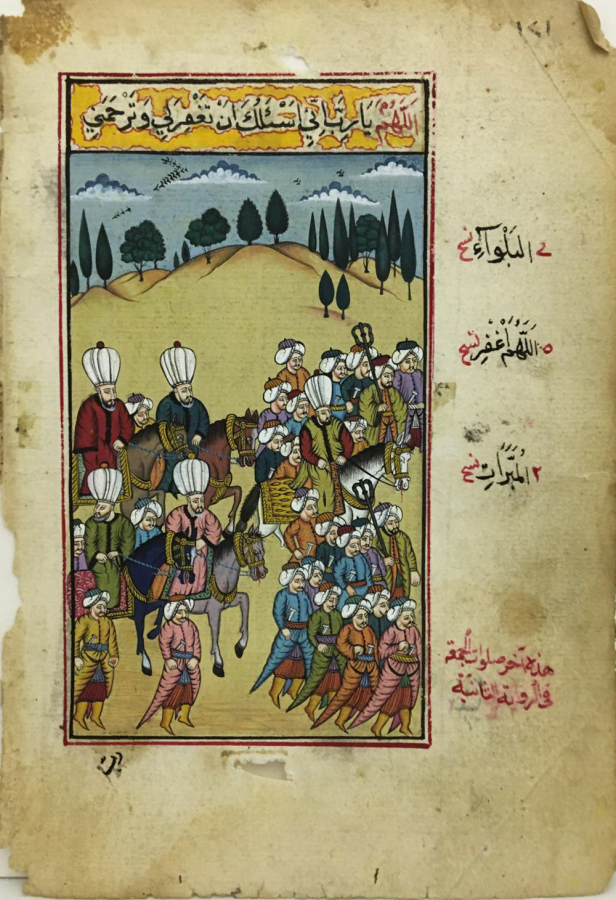 اَللّٰهُمَّ يَا رَبِّ اِنِّي اَسْئَلُكَ اَنْ تَغْفِرَلِي وَتَرْحَمَنِي
الْبَلْوَآءِ نسخ
٥ اَللّٰهُمَّ اغْفِرْ نسخ
٢ الْمَبَرَّاتِ نسخ
هذه آخر صلوات الجمعة
في الرواية الثانية